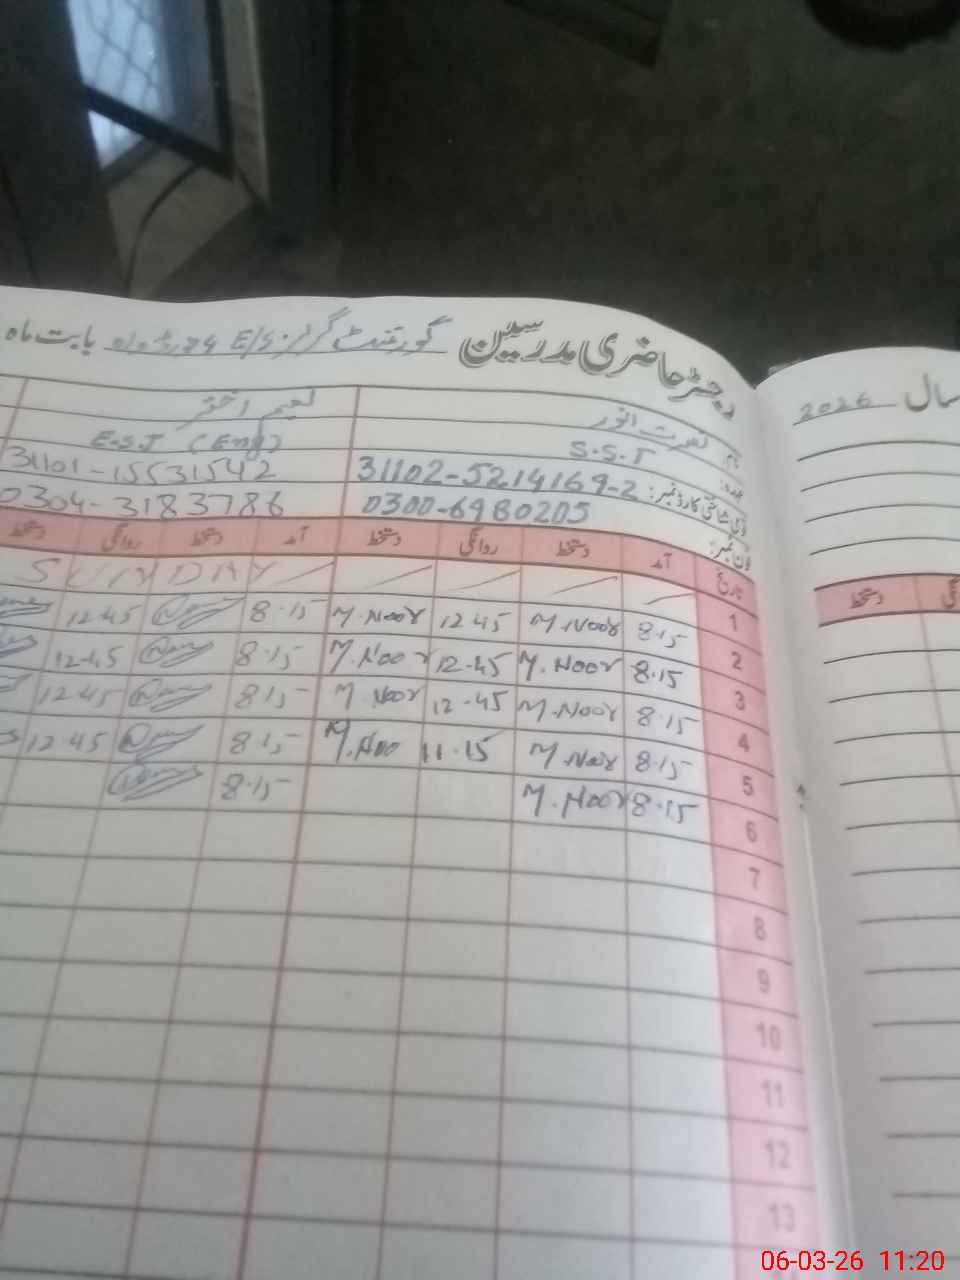 رجسٹر حاضری مدرسین گورنمنٹ گرلز E/S بابت ماہ
سال 2026
نام
انور
نعیم اختر
عہدہ:
S.S.T
E.S.T (Eng)
قومی شناختی کارڈ نمبر: 31102-5214169-2
31101-1553154 2
فون نمبر: 0300-6980205
0304-3183786
تاریخ آمد دستخط روانگی دستخط آمد دستخط روانگی دستخط
دستخط
1 SUNDAY
2 8.15 M.Noor 12.45 M.Noor 8.15 12.45
3 8.15 M.Noor 12.45 M.Noor 8.15 12.45
4 8.15 M.Noor 12.45 M.Noor 8.15 12.45
5 8.15 M.Noor 11.15 M.Noo 8.15 12.45
6 8.15 M.Noor 8.15
7
8
9
10
11
12
13
06-03-26 11:20